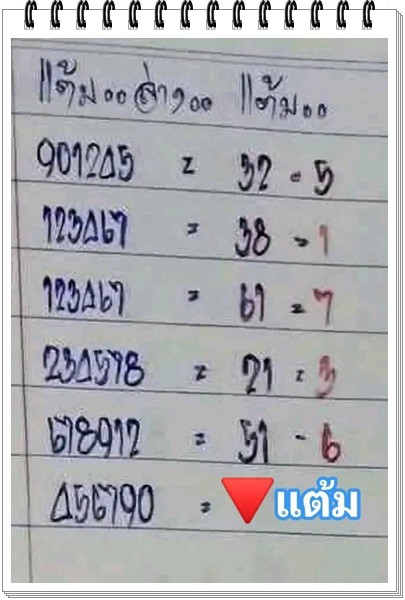 แต้ม..ล่าง.. แต้ม..
901245 = 32 = 5
123467 = 38 = 1
123467 = 61 = 7
234578 = 21 = 3
678912 = 51 - 6
456790 = 🔻แต้ม